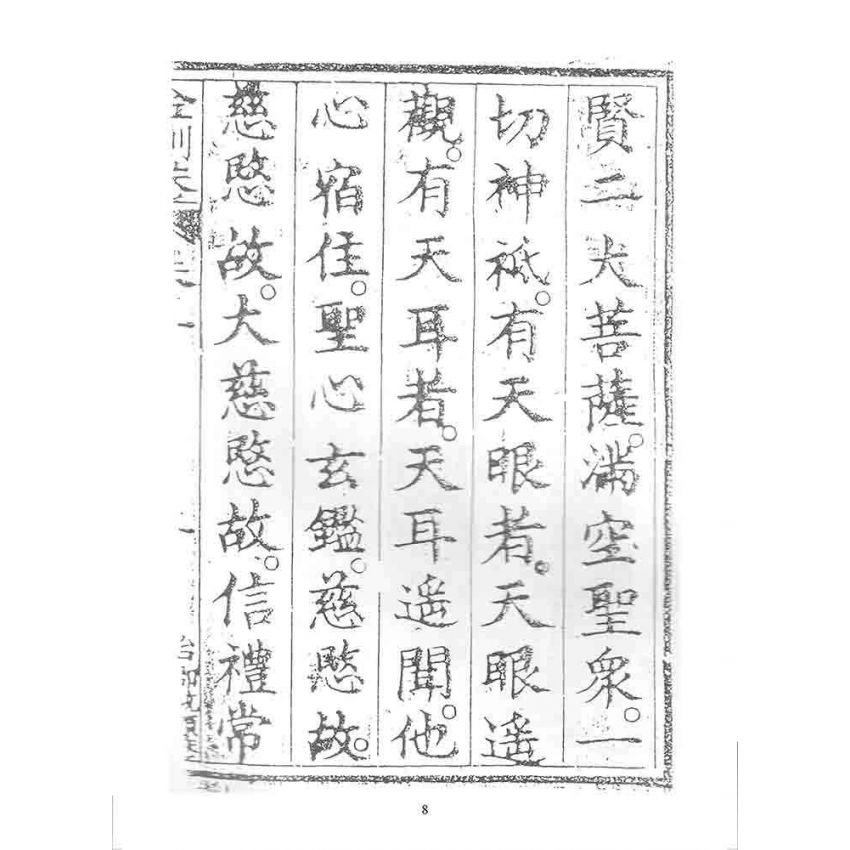 賢二大菩薩。滿空聖衆。一
切神祇。有天眼者。天眼遥
觀。有天耳者。天耳遥聞。他
心宿住。聖心玄鑑。慈愍故。
慈愍故。大慈愍故。信禮常
8